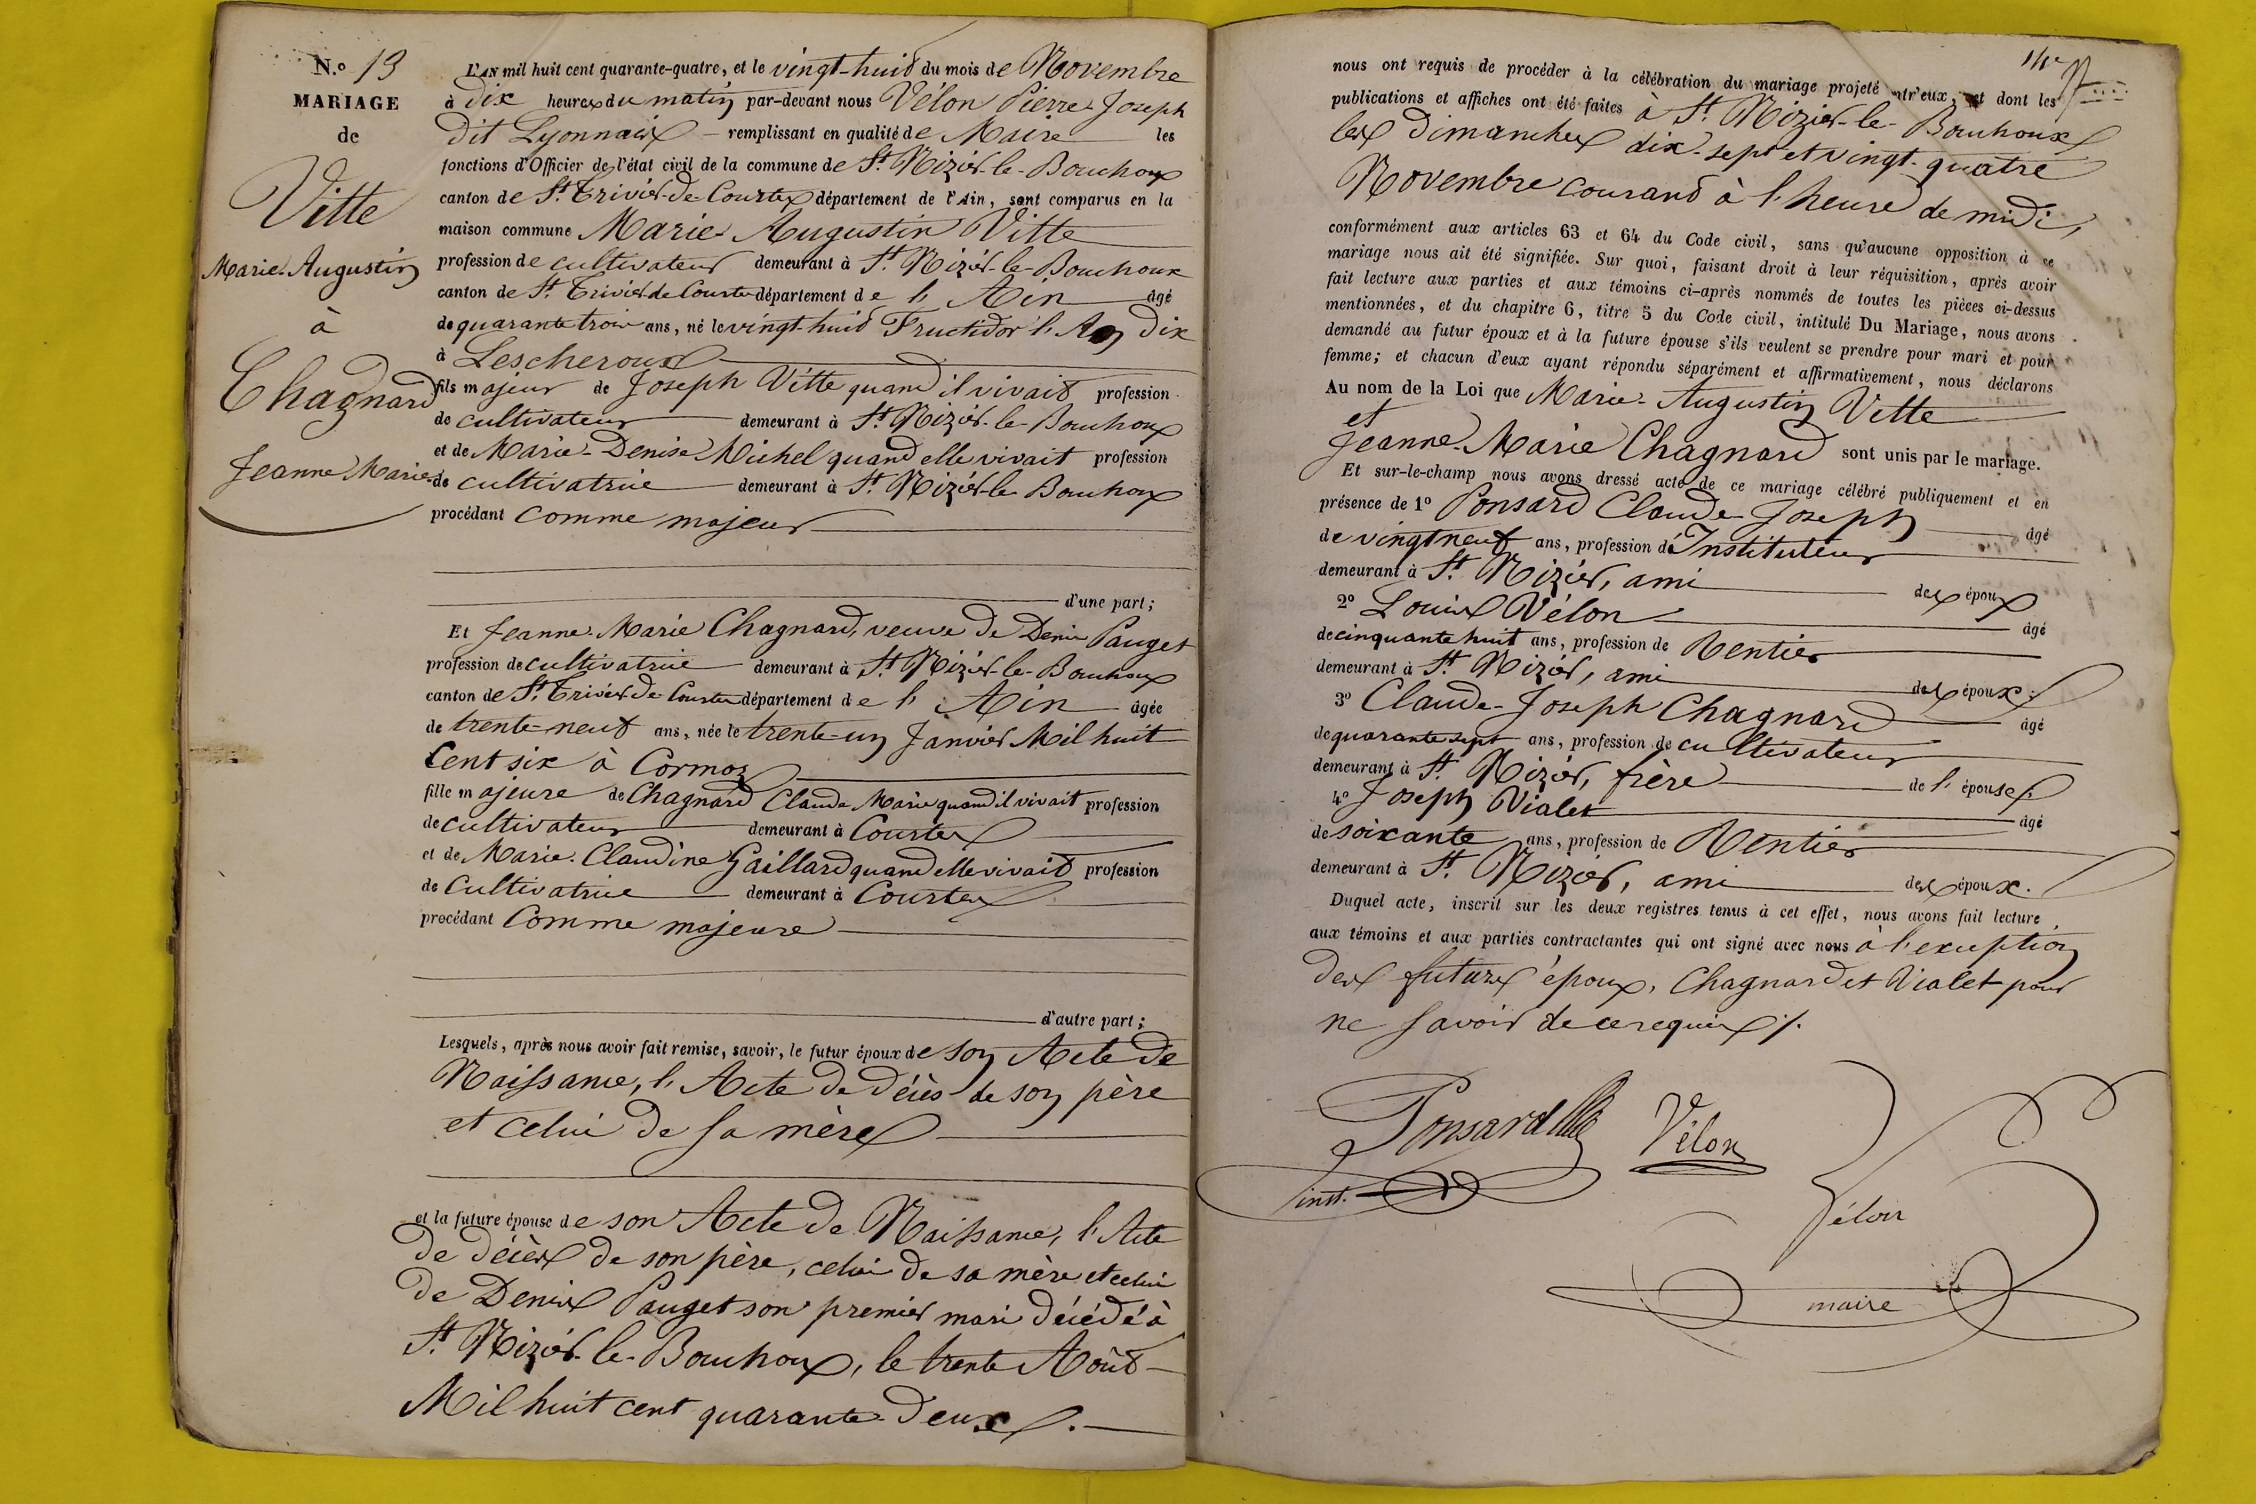 N.º 13
MARIAGE
de
Vitte
Marie-Augustin
à
Chagnard
Jeanne Marie
L'AN mil huit cent quarante-quatre, et le vingt-huit du mois de Novembre
à dix heures du matin par-devant nous Vélon Pierre Joseph
dit Lyonnais remplissant en qualité de Maire les
fonctions d'Officier de l'état civil de la commune de St. Nizier-le-Bouchoux
canton de St. Trivier-de-Courtes département de l'Ain, sont comparus en la
maison commune Marie-Augustin Vitte
profession de cultivateur demeurant à St. Nizier-le-Bouchoux
canton de St. Trivier-de-Courtes département de l'Ain âgé
de quarante trois ans, né le vingt-huit Fructidor l'An dix
à Lescheroux
fils majeur de Joseph Vitte quand il vivait profession
de cultivateur demeurant à St. Nizier-le-Bouchoux
et de Marie-Denise Michel quand elle vivait profession
de cultivatrice demeurant à St. Nizier-le-Bouchoux
procédant comme majeur
d'une part;
Et Jeanne-Marie Chagnard, veuve de Denis Pauget
profession de cultivatrice demeurant à St. Nizier-le-Bouchoux
canton de St. Trivier-de-Courtes département de l'Ain âgée
de trente-neuf ans, née le trente-un Janvier Mil huit
Cent six à Cormoz
fille majeure de Chagnard Claude Marie quand il vivait profession
de cultivateur demeurant à Courtes
et de Marie-Claudine Gaillard quand elle vivait profession
de cultivatrice demeurant à Courtes
procédant Comme majeure
d'autre part;
Lesquels, après nous avoir fait remise, savoir, le futur époux de son Acte de
Naissance, l'Acte de décès de son père
et celui de sa mère
et la future épouse de son Acte de Naissance, l'Acte
de décès de son père, celui de sa mère et celui
de Denis Pauget son premier mari décédé à
St. Nizier-le-Bouchoux, le trente Août
Mil huit cent quarante-deux.
nous ont requis de procéder à la célébration du mariage projeté entr'eux, et dont les
publications et affiches ont été faites à St. Nizier-le-Bouchoux
les dimanches dix-sept et vingt-quatre
Novembre courant à l'heure de midi,
conformément aux articles 63 et 64 du Code civil, sans qu'aucune opposition à ce
mariage nous ait été signifiée. Sur quoi, faisant droit à leur réquisition, après avoir
fait lecture aux parties et aux témoins ci-après nommés de toutes les pièces ci-dessus
mentionnées, et du chapitre 6, titre 5 du Code civil, intitulé Du Mariage, nous avons
demandé au futur époux et à la future épouse s'ils veulent se prendre pour mari et pour
femme; et chacun d'eux ayant répondu séparément et affirmativement, nous déclarons
Au nom de la Loi que Marie-Augustin Vitte
et
Jeanne-Marie Chagnard sont unis par le mariage.
Et sur-le-champ nous avons dressé acte de ce mariage célébré publiquement et en
présence de 1º Ponsard Claude-Joseph âgé
de vingt neuf ans, profession d'Instituteur
demeurant à St. Nizier, ami des époux
2º Louis Vélon âgé
de cinquante huit ans, profession de Rentier
demeurant à St. Nizier, ami des époux;
3º Claude-Joseph Chagnard âgé
de quarante sept ans, profession de cultivateur
demeurant à St. Nizier, frère de l'épouse;
4º Joseph Vialet âgé
de soixante ans, profession de Rentier
demeurant à St. Nizier, ami des époux.
Duquel acte, inscrit sur les deux registres tenus à cet effet, nous avons fait lecture
aux témoins et aux parties contractantes qui ont signé avec nous à l'exception
des futurs époux, Chagnard et Vialet pour
ne savoir de ce requis ./.
Ponsard
inst.
Vélon
Vélon
maire